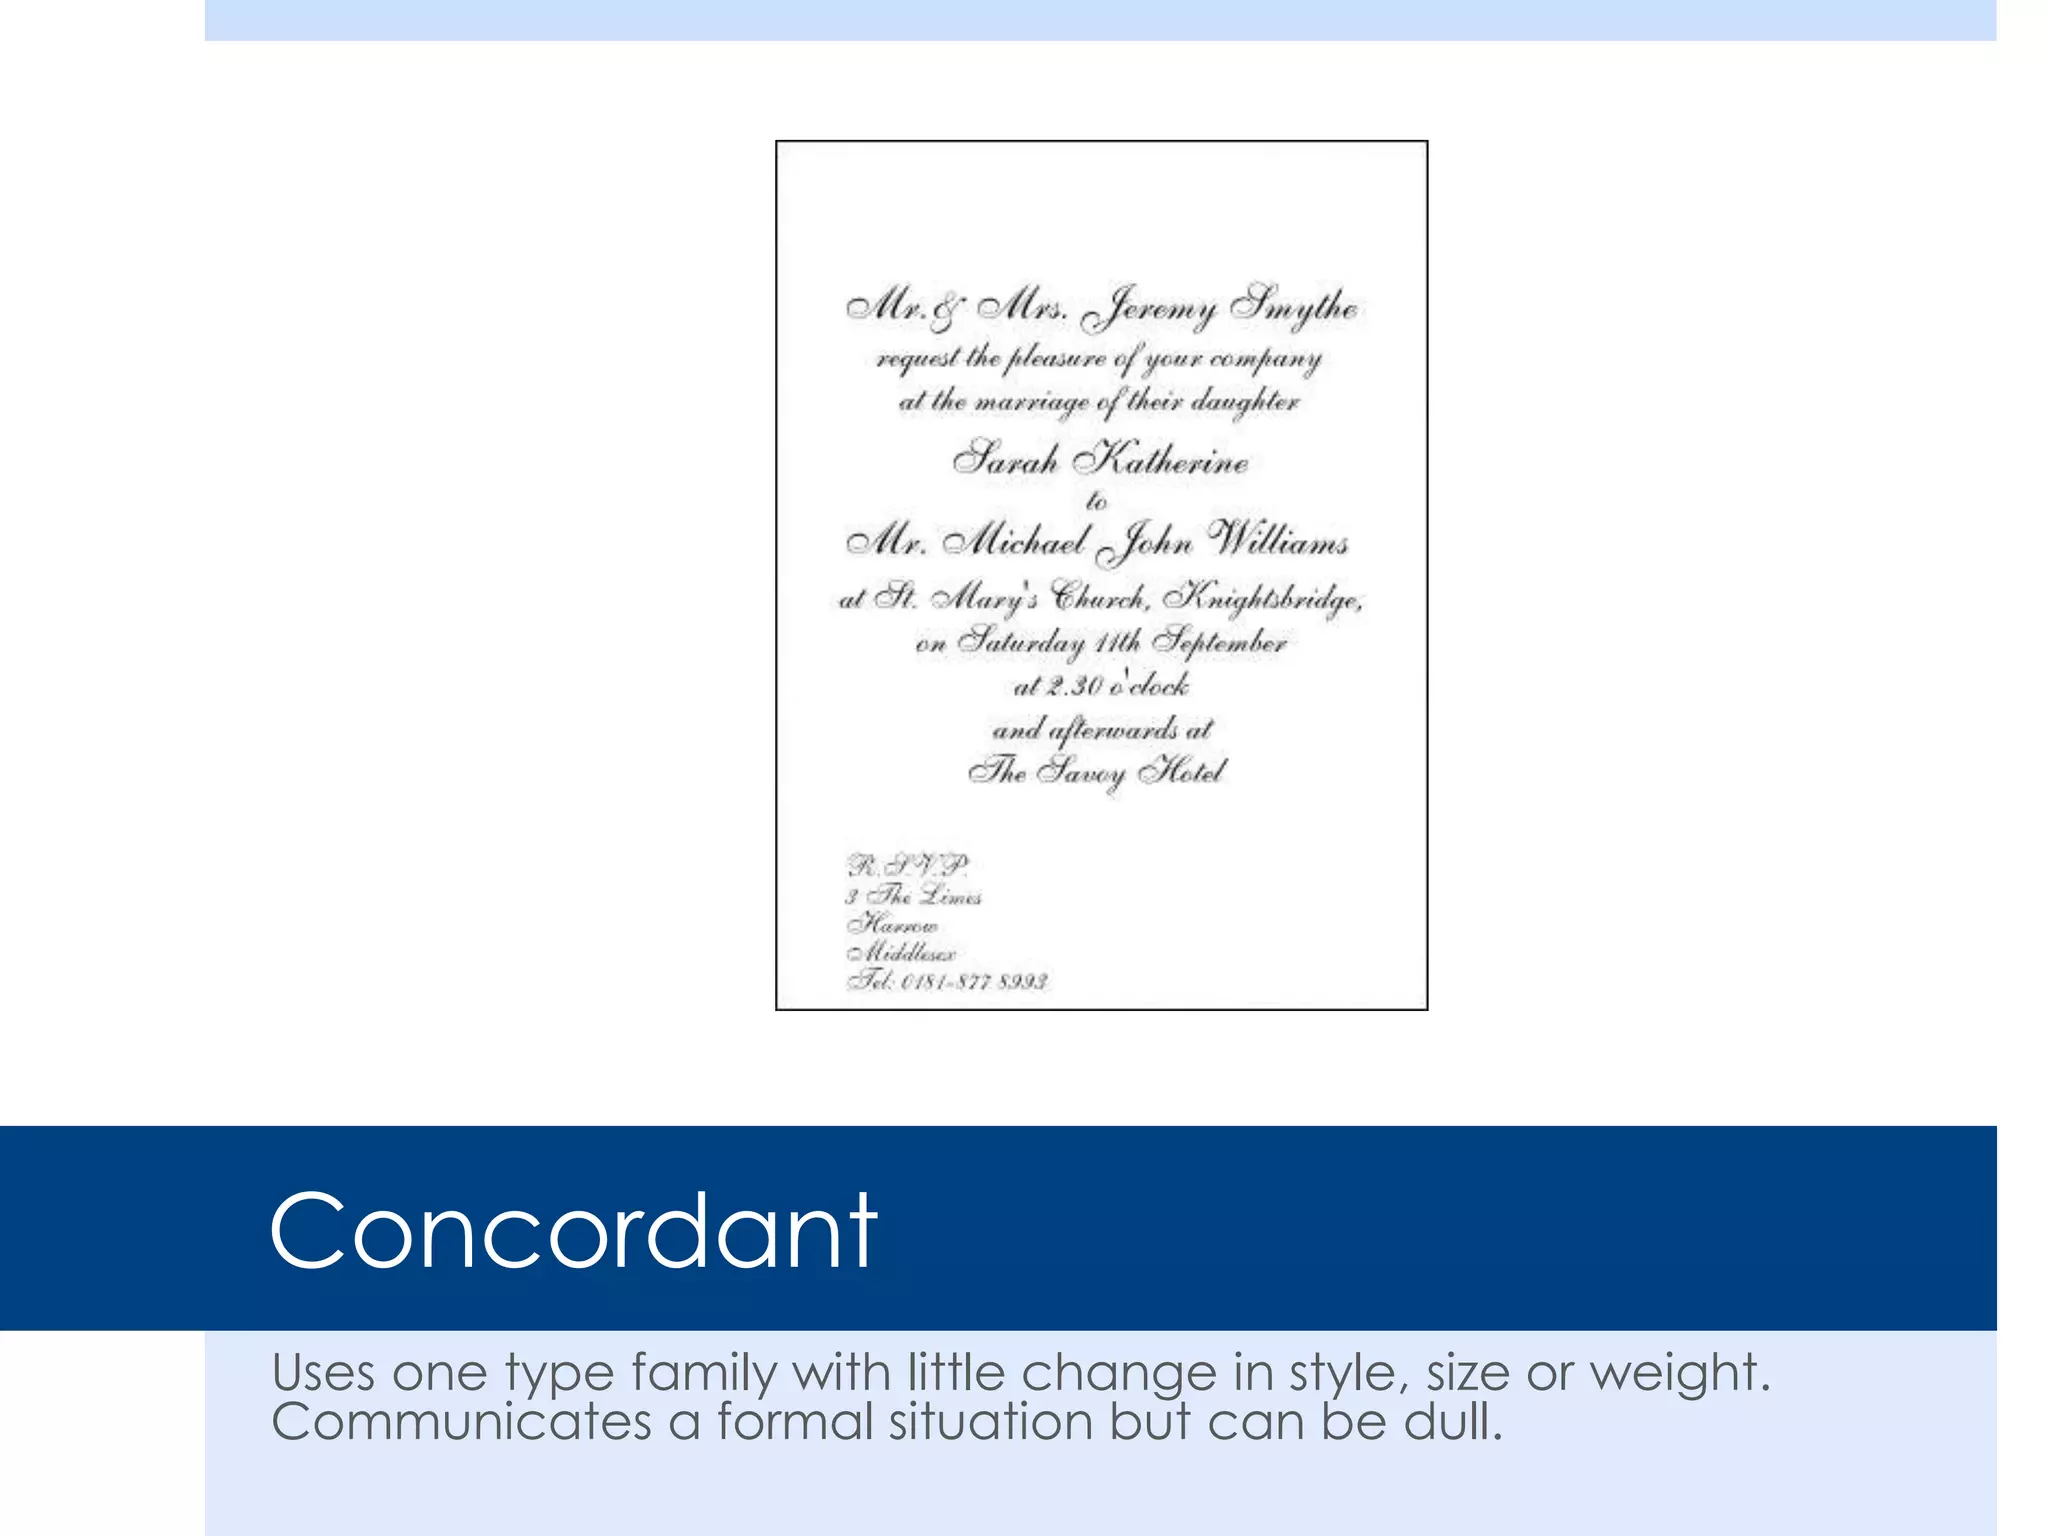 Mr. & Mrs. Jeremy Smythe
request the pleasure of your company
at the marriage of their daughter
Sarah Katherine
to
Mr. Michael John Williams
at St. Mary's Church, Knightsbridge,
on Saturday 11th September
at 2.30 o'clock
and afterwards at
The Savoy Hotel
R.S.V.P.
3 The Limes
Harrow
Middlesex
Tel: 0181-877 8993
Concordant
Uses one type family with little change in style, size or weight.
Communicates a formal situation but can be dull.